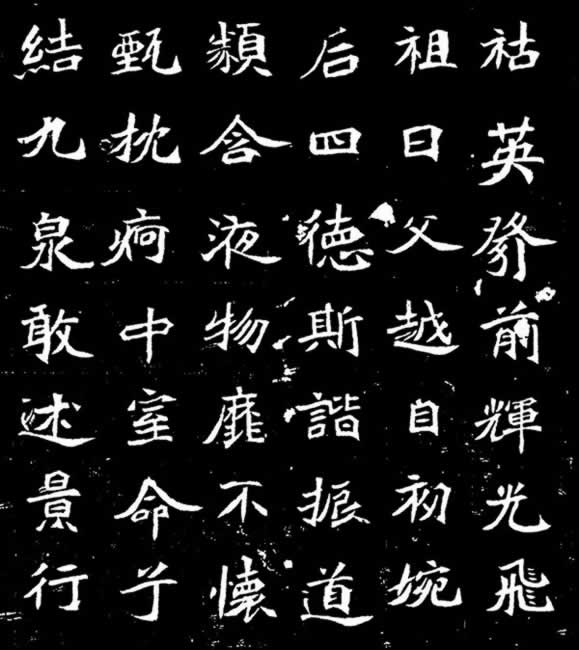 祜英發前輝光飛
祖曰父越自初婉
后四德斯諧振道
含液物靡不懷
甄枕痾中室命兮
結九泉敢述景行